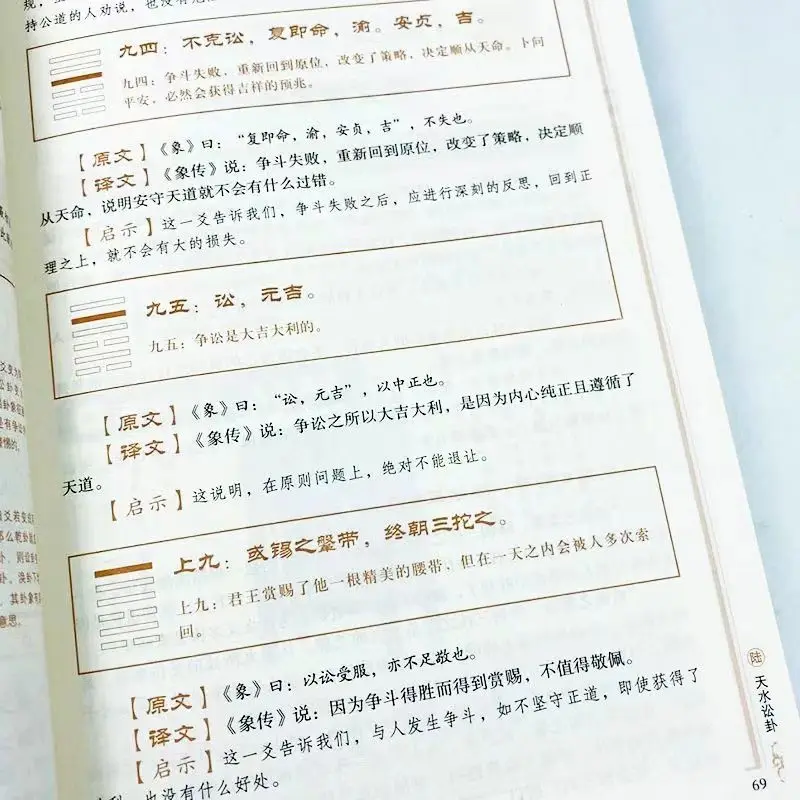 持公道的人劝说，也没有
九四：不克讼，复即命，渝。安贞，吉。
九四：争斗失败，重新回到原位，改变了策略，决定顺从天命。卜问
平安，必然会获得吉祥的预兆。
【原文】《象》曰：“复即命，渝，安贞，吉”，不失也。
【译文】《象传》说：争斗失败，重新回到原位，改变了策略，决定顺
从天命，说明安守天道就不会有什么过错。
【启示】这一爻告诉我们，争斗失败之后，应进行深刻的反思，回到正
理之上，就不会有大的损失。
九五：讼，元吉。
九五：争讼是大吉大利的。
【原文】《象》曰：“讼，元吉”，以中正也。
【译文】《象传》说：争讼之所以大吉大利，是因为内心纯正且遵循了
天道。
【启示】这说明，在原则问题上，绝对不能退让。
上九：或锡之鞶带，终朝三拕之。
上九：君王赏赐了他一根精美的腰带，但在一天之内会被人多次索
回。
【原文】《象》曰：以讼受服，亦不足敬也。
【译文】《象传》说：因为争斗得胜而得到赏赐，不值得敬佩。
【启示】这一爻告诉我们，与人发生争斗，如不坚守正道，即使获得了
利，也没有什么好处。
陆
天水讼卦
69